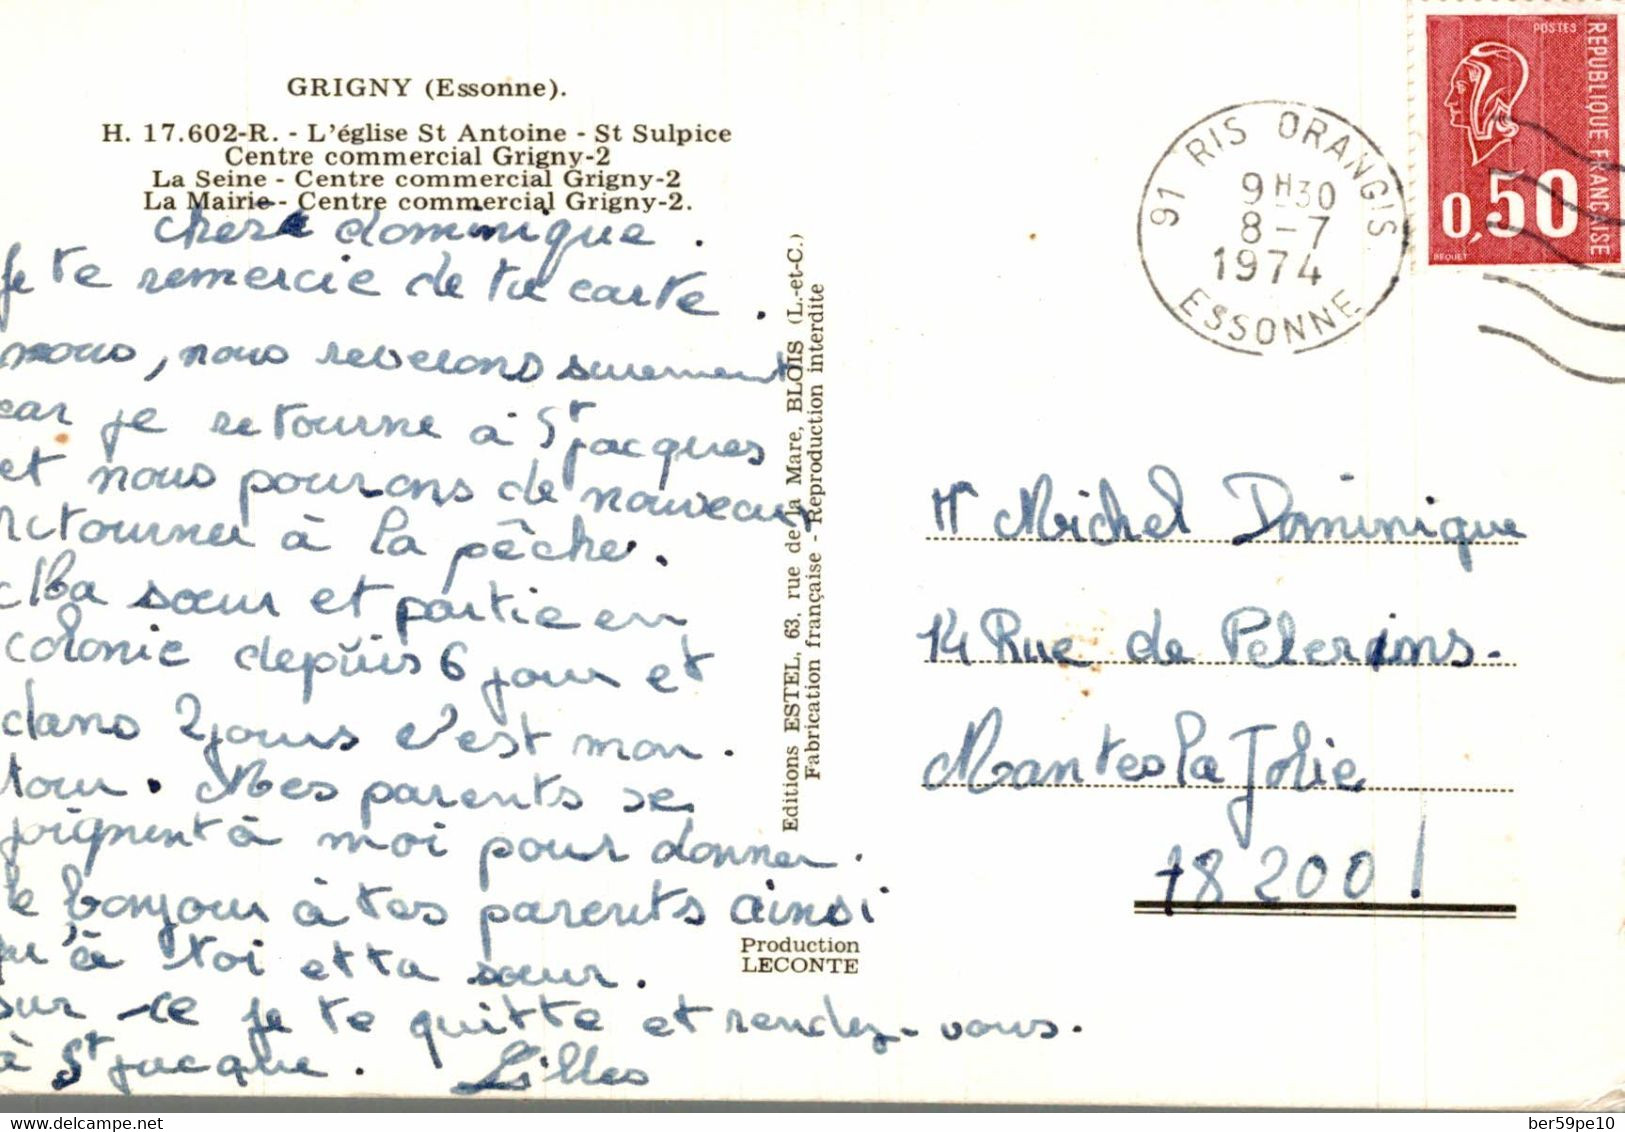 GRIGNY (Essonne).
H. 17.602-R. - L'église St Antoine - St Sulpice
Centre commercial Grigny-2
La Seine - Centre commercial Grigny-2
La Mairie - Centre commercial Grigny-2.
cher dominique.
Je te remercie de ta carte.
nous, nous reverons surement
car je retourne à St jacques
et nous pourons de nouveau
retourner à la pêche.
Ma sœur et partie en
colonie depuis 6 jours et
dans 2 jours c'est mon.
tour. Mes parents se
joignent à moi pour donner.
le bonjour à tes parents ainsi
qu'à toi et ta sœur.
sur ce je te quitte et rendez-vous.
à St jacque. Gilles
Editions ESTEL, 63, rue de la Mare, BLOIS (L.-et-C.)
Fabrication française - Reproduction interdite
Production
LECONTE
91 RIS ORANGIS
9H30
8-7
1974
ESSONNE
POSTES
REPUBLIQUE FRANÇAISE
0,50
BEQUET
Mr Michel Dominique
14 Rue de Pelerins-
Mantes la Jolie
78200
www.delcampe.net
ber59pe10